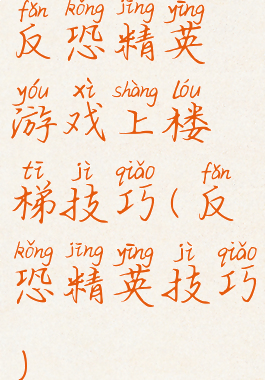 fǎn kǒng jīng yīng
反恐精英
yóu xì shàng lóu
游戏上楼
tī jì qiǎo fǎn
梯技巧(反
kǒng jīng yīng jì qiǎo
恐精英技巧
)